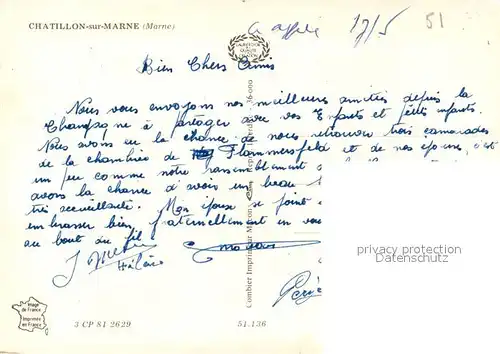 CHATILLON-sur-MARNE (Marne)
17/5
51
Bien Chers Amis
Nous vous envoyons nos meilleurs amitiés depuis la
Champagne à partager avec vos Enfants et petits enfants
Nous avons eu la chance de nous retrouver trois camarades
de la chambrée de Flammersfeld et de nos épouses, c'est
un peu comme notre rassemblement
avons la chance d'avoir un beau
très accueillante. Mon épouse se joint
embrasser bien fraternellement en vous
au bout du fil
Hélène
Combier Imprimeur Macon
privacy protection
Image
de France
Imprimée
en France
3 CP 81 2629
51.136